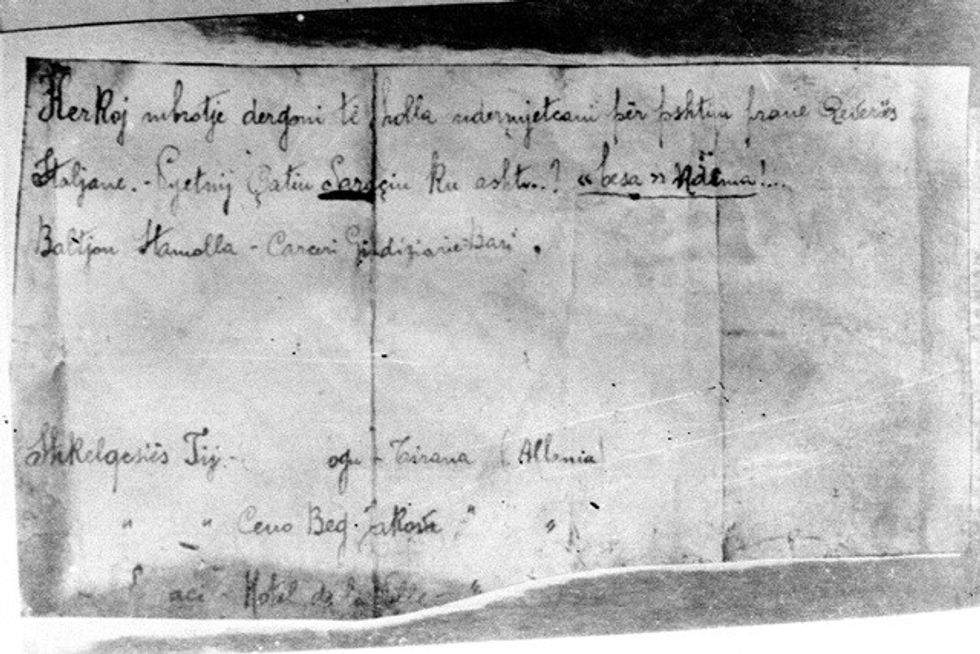 Kerkoj mbrotje dergoni të holla ndermjetcani për pshtim prane Qeveriës
Italjane. - Pyetnij Çatin Saraçin ku asht...? « besa » Ndema!...
Baltjon Stamolla - Carceri Giudiziarie Bari.
Shkelqesiës Tij - ogu - Tirana (Allbnia)
" " Ceno Beg Jakova " "
aci - Hotel de la Ville - "